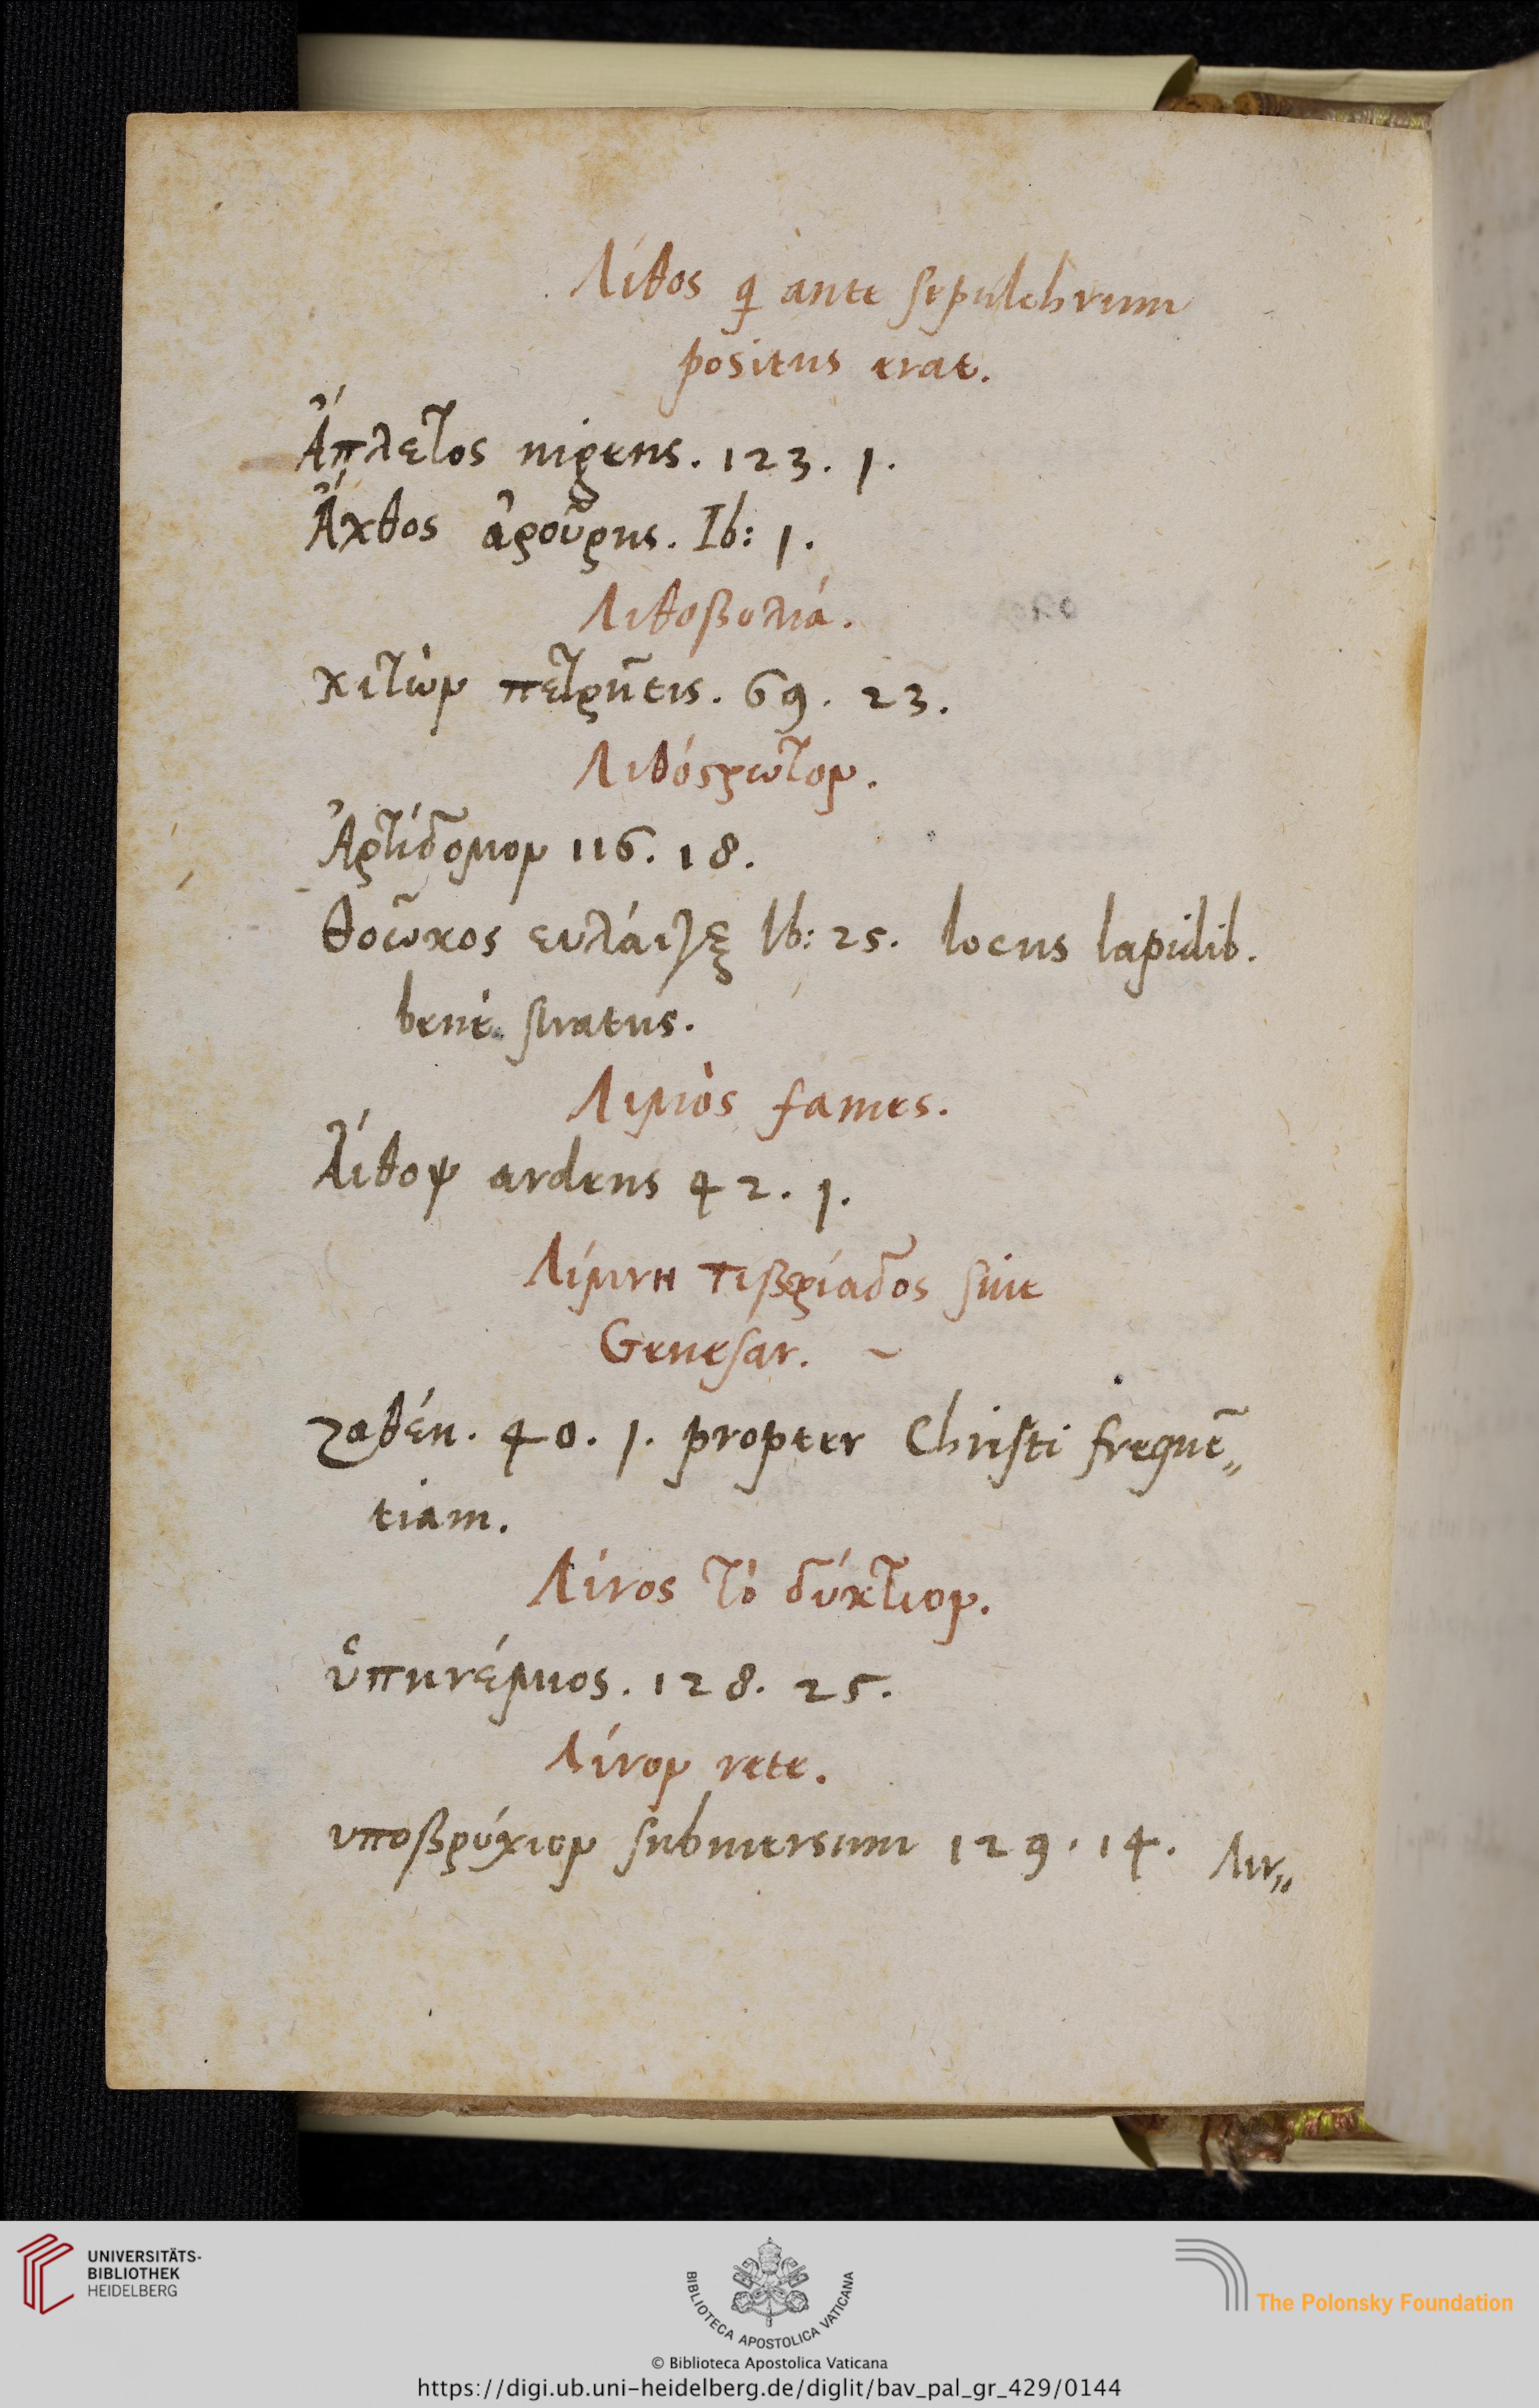 Λίθος q̨ ante sepulchrum
positus erat.
Ἄπλετος nigens. 123. 1.
Ἄχθος ἀρούρης. Ib: 1.
Λιθοβολιά.
χιτὼν πετρῆεις. 69. 23.
Λιθόστρωτον.
Ἀρτίδομον 116. 18.
θοῶκος Ib: 25. locus lapidib.
benè stratus.
Λιμὸς fames.
Αἴθοψ ardens 42. 1.
Λίμνη τιβεριάδος siue
Genesar. ~
ζαθέη. 40. 1. propter Christi frequē„
tiam.
Λίνος τὸ δύκτιον.
ὑπηνέμιος. 128. 25.
Λίνον rete.
υποβρύχιον submersum 129. 14. Λιν„
UNIVERSITÄTS-
BIBLIOTHEK
HEIDELBERG
BIBLIOTECA APOSTOLICA VATICANA
The Polonsky Foundation
© Biblioteca Apostolica Vaticana
https://digi.ub.uni-heidelberg.de/diglit/bav_pal_gr_429/0144